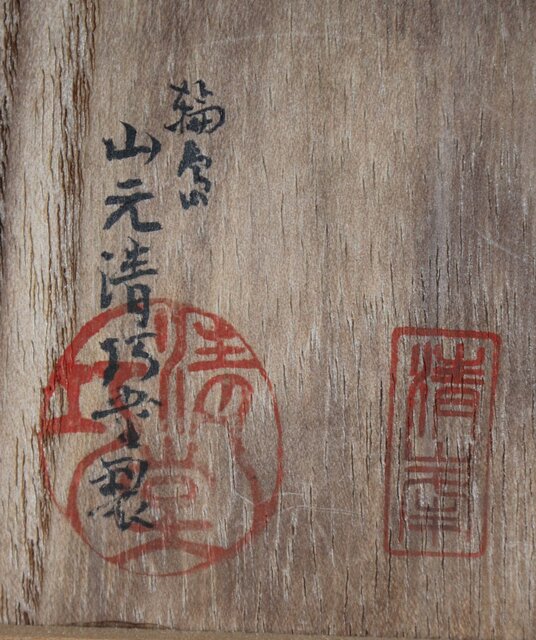 輪島
山元清巧堂製
清巧堂
清堂